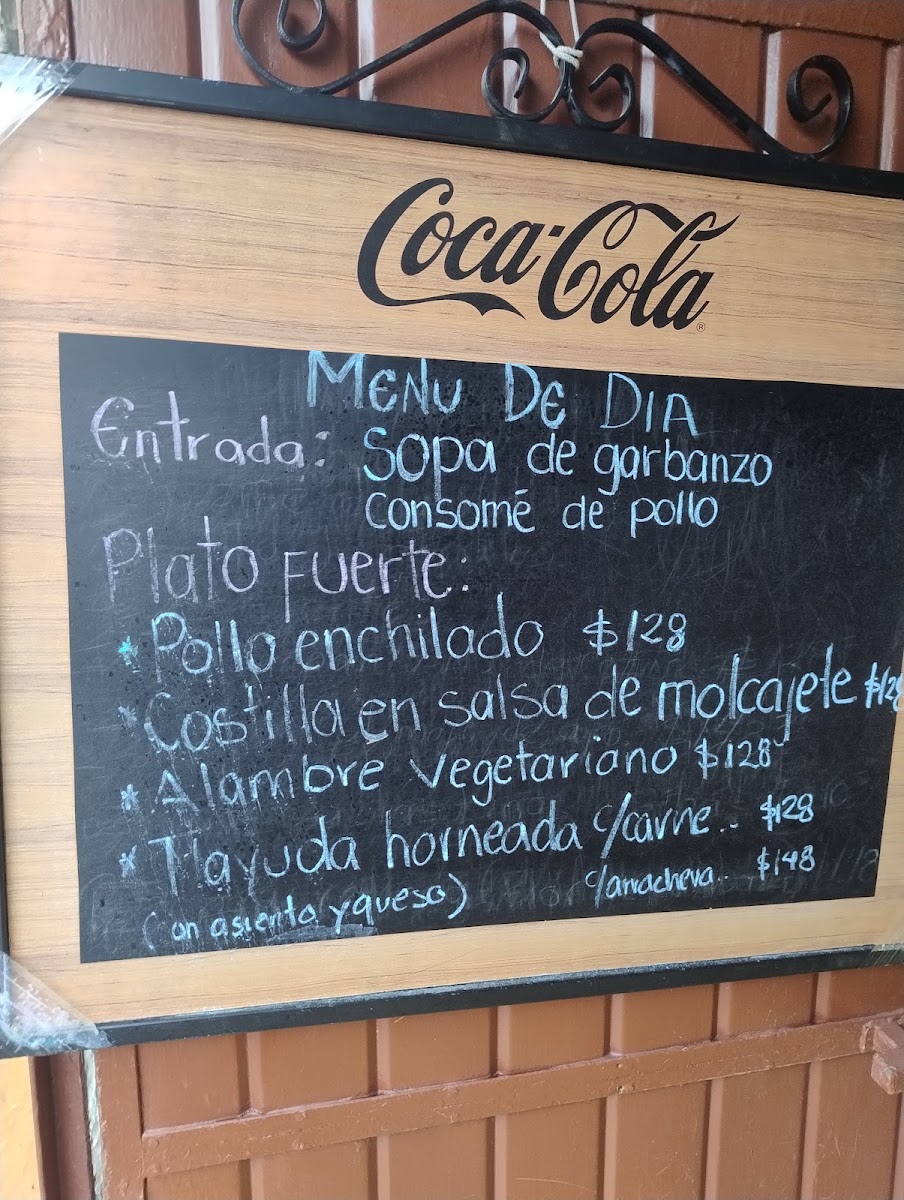 Coca-Cola®
MENU DE DIA
Entrada: Sopa de garbanzo
Consomé de pollo
Plato Fuerte:
* Pollo enchilado $128
* Costilla en salsa de molcajete $128
* Alambre vegetariano $128
* Tlayuda horneada c/carne.. $128
(con asiento y queso) c/arrachera.. $148